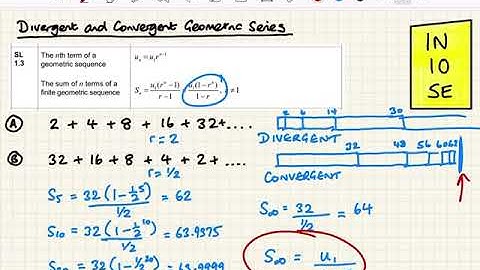 Divergent and Convergent Geometric Series
IN
10
SE
SL
1.3
The nth term of a
geometric sequence
uₙ = u₁rⁿ⁻¹
The sum of n terms of a
finite geometric sequence
Sₙ = u₁(rⁿ−1)/r−1 = u₁(1−rⁿ)/1−r, r ≠ 1
A 2 + 4 + 8 + 16 + 32+....
r = 2
2 6 14 30
DIVERGENT
B 32 + 16 + 8 + 4 + 2 + ....
r = 1/2
32 48 56 60 62
CONVERGENT
S₅ = 32(1−½⁵)/1/2 = 62
S∞ = 32/½ = 64
S₁₀ = 32(1−½¹⁰)/1/2 = 63.9375
S∞ = u₁
32(1−½²⁰) = 63.9999